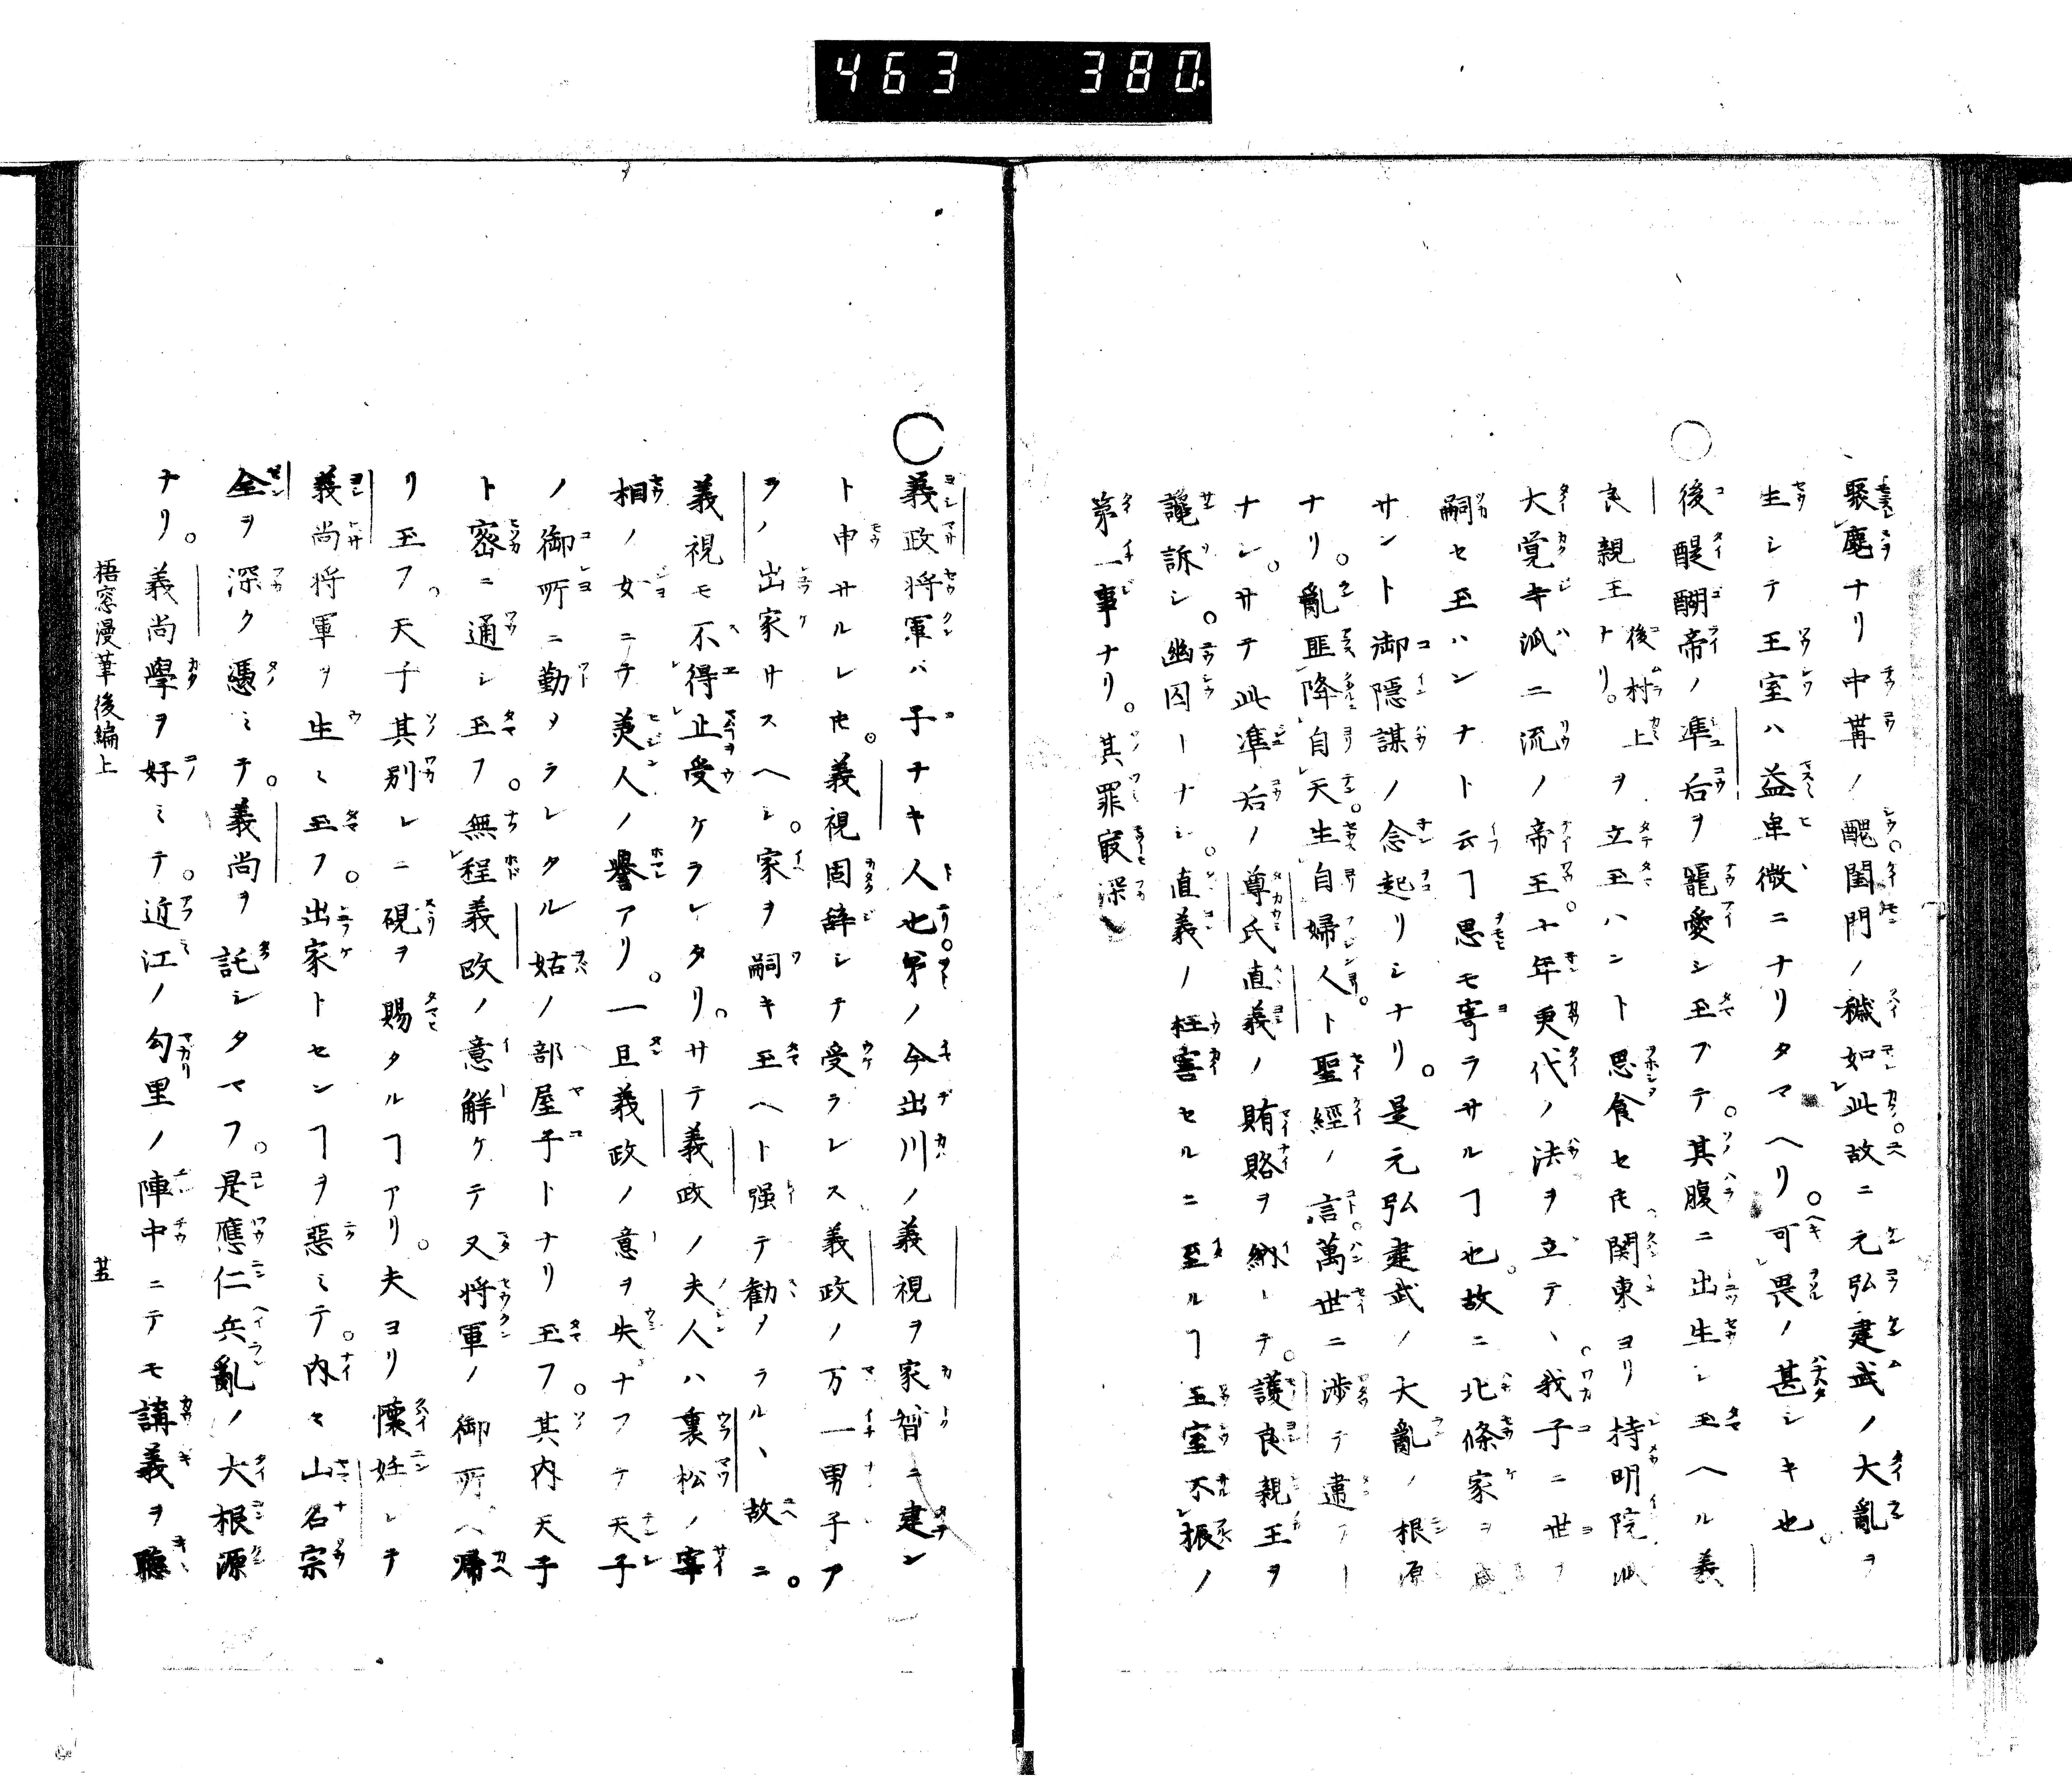 463 380
聚麀ナリ中冓ノ醜閨門ノ穢如此故ニ元弘建武ノ大亂ヲ
生シテ王室ハ益卑微ニナリタマヘリ。可畏ノ甚シキ也。
○後醍醐帝ノ準后ヲ寵愛シ玉フテ。其腹ニ出生シ玉ヘル義
良親王ナリ。後村上ヲ立玉ハント思食セ𪜈関東ヨリ持明院派
大覚寺派二流ノ帝王。十年更代ノ法ヲ立テ、。我子ニ世ヲ
嗣セ玉ハンナト云ヿ思モ寄ラサルヿ也。故ニ北條家ヲ
サント御隠謀ノ念起リシナリ。是元弘建武ノ大亂ノ根源
ナリ。亂匪降自天。生自婦人ト聖經ノ言。萬世ニ渉テ違フ
ナシ。サテ此準后ノ尊氏直義ノ賄賂ヲ納レテ。護良親王ヲ
讒訴シ。幽囚ーナシ。直義ノ枉害セルニ至ルヿ王室不振ノ
第一事ナリ。其罪㝡深
○義政将軍ハ子ナキ人也。弟ノ今出川ノ義視ヲ家督ニ建ン
ト申サルレ𪜈。義視固辞シテ受ラレス義政ノ万一男子ア
ラハ出家サスヘシ。家ヲ嗣キ玉ヘト强テ勧メラル、故ニ。
義視モ不得止受ケラレタリ。サテ義政ノ夫人ハ裏松ノ宰
相ノ女ニテ美人ノ譽アリ。一旦義政ノ意ヲ失ナフテ天子
ノ御所ニ勤メラレタル姑ノ部屋子トナリ玉フ。其内天子
ト密ニ通シ玉フ。無程義政ノ意解ケテ又将軍ノ御所ヘ帰
リ玉フ。天子其別レニ硯ヲ賜タルヿアリ。夫ヨリ懐妊シテ
義尚将軍ヲ生ミ玉フ。出家トセンヿヲ惡ミテ。内々山名宗
全ヲ深ク憑ミテ。義尚ヲ託シタマフ。是應仁兵亂ノ大根源
ナリ。義尚學ヲ好ミテ。近江ノ勾里ノ陣中ニテモ講義ヲ聽
梧窓漫筆後編上 廿五